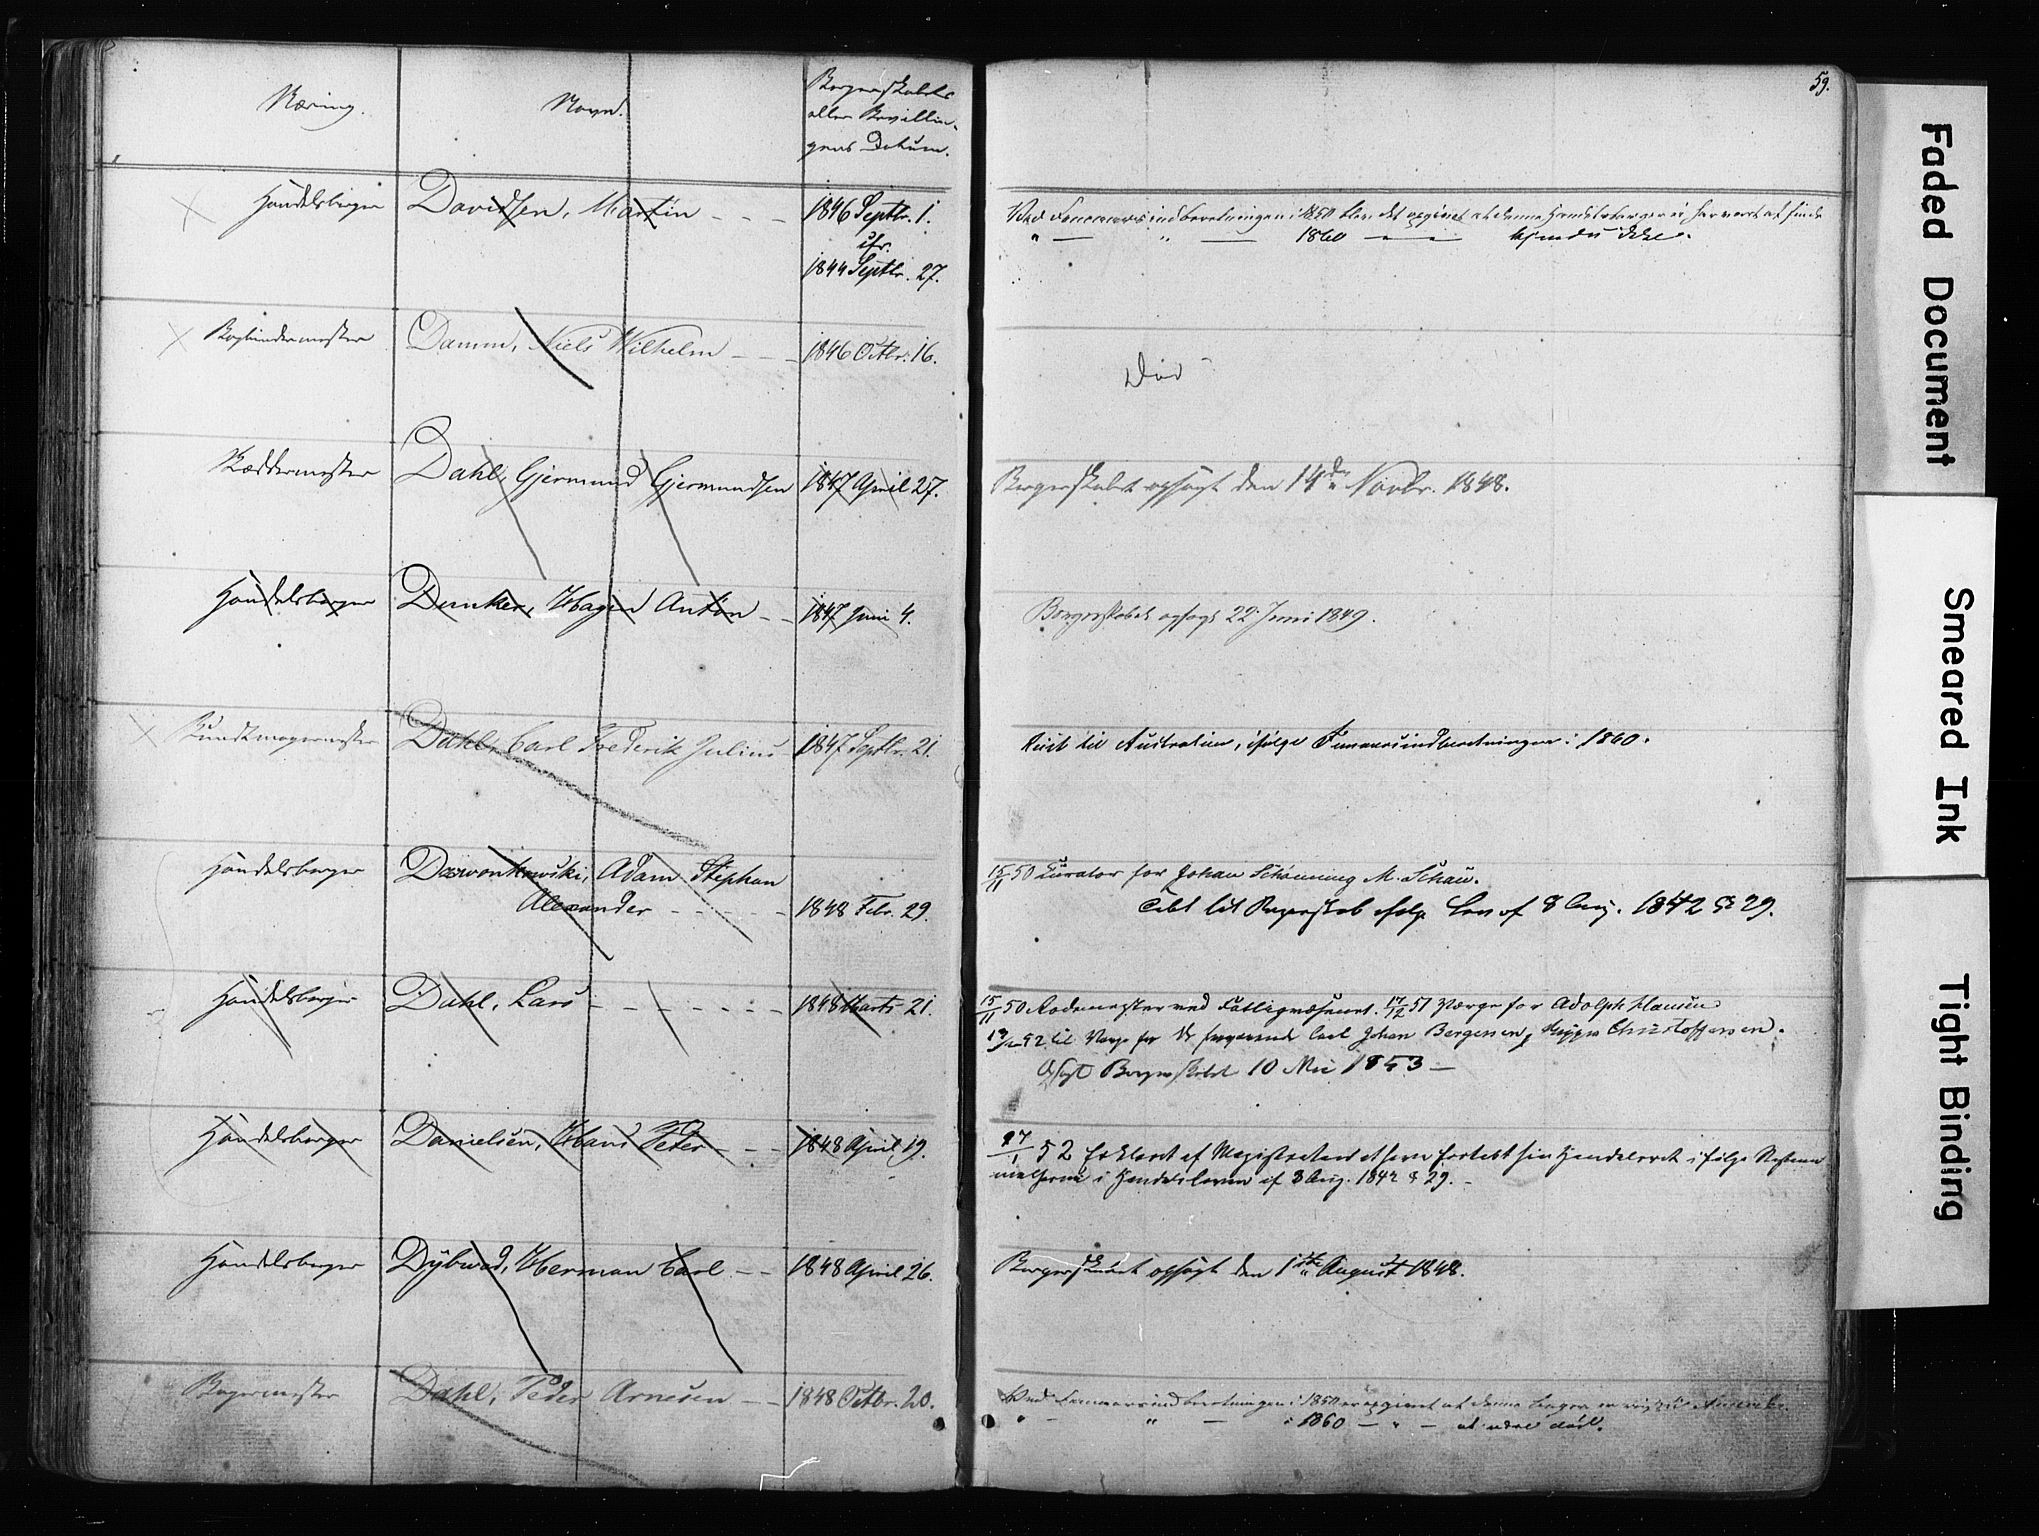 59.
Næring.
Navn.
Borgerskabets
eller Bevillin-
gens Datum.
Handelsborger
Davidsen, Martin
1846 Septbr. 1.
cfr.
1844 Septbr. 27.
Ved Femaarsindberetningen i 1850 blev det opgivet at denne Handelsborger ei har været at finde
" — " — 1860 — — kjendes ikke.
Bogbindermester
Damm, Niels Wilhelm
1846 Octbr. 16.
Død
Skræddermester
Dahl, Gjermund Gjermundsen
1847 April 27.
Borgerskabet opsagt den 14de Novbr. 1848.
Handelsborger
Dunker, Hagen Anton
1847 Juni 4.
Borgerskabet opsagt 22 Juni 1849.
Bundtmagermester
Dahl, Carl Frederik Julius
1847 Septbr. 21.
Reist til Australien, ifølge Femaarsindberetningen i 1860.
Handelsborger
Adam Stephan
Alexander
1848 Febr. 29.
15/11 50 Curator for Johan Schønning M. Schau.
Tabt sit Borgerskab ifølge Lov af 8 Aug. 1842 § 29.
Handelsborger
Dahl, Lars
1848 Marts 21.
15/11 50 Rodemester ved Fattigvæsenet. 17/12 51 Værge for Adolph Hansen
52 til Værge for Carl Johan Bergersen, Christoffersen.
Opsagt Borgerskabet 10 Mai 1853 —
Handelsborger
Danielsen, Hans Peter
1848 April 19.
27/1 52 Erklæret af Magistraten at have fortabt sin Handelsret i følge Bestem
melserne i Handelsloven af 8 Aug. 1842 § 29. -
Handelsborger
Dybwad, Herman Carl
1848 April 26.
Borgerskabet opsagt den 1ste August 1848.
Bagermester
Dahl, Peder Arnesen
1848 Octbr. 20.
Ved Femaarsindberetningen i 1850 er opgivet at denne Borger er reist til Amerika.
" — " — i 1860 — " — at være død.
Faded Document
Smeared Ink
Tight Binding